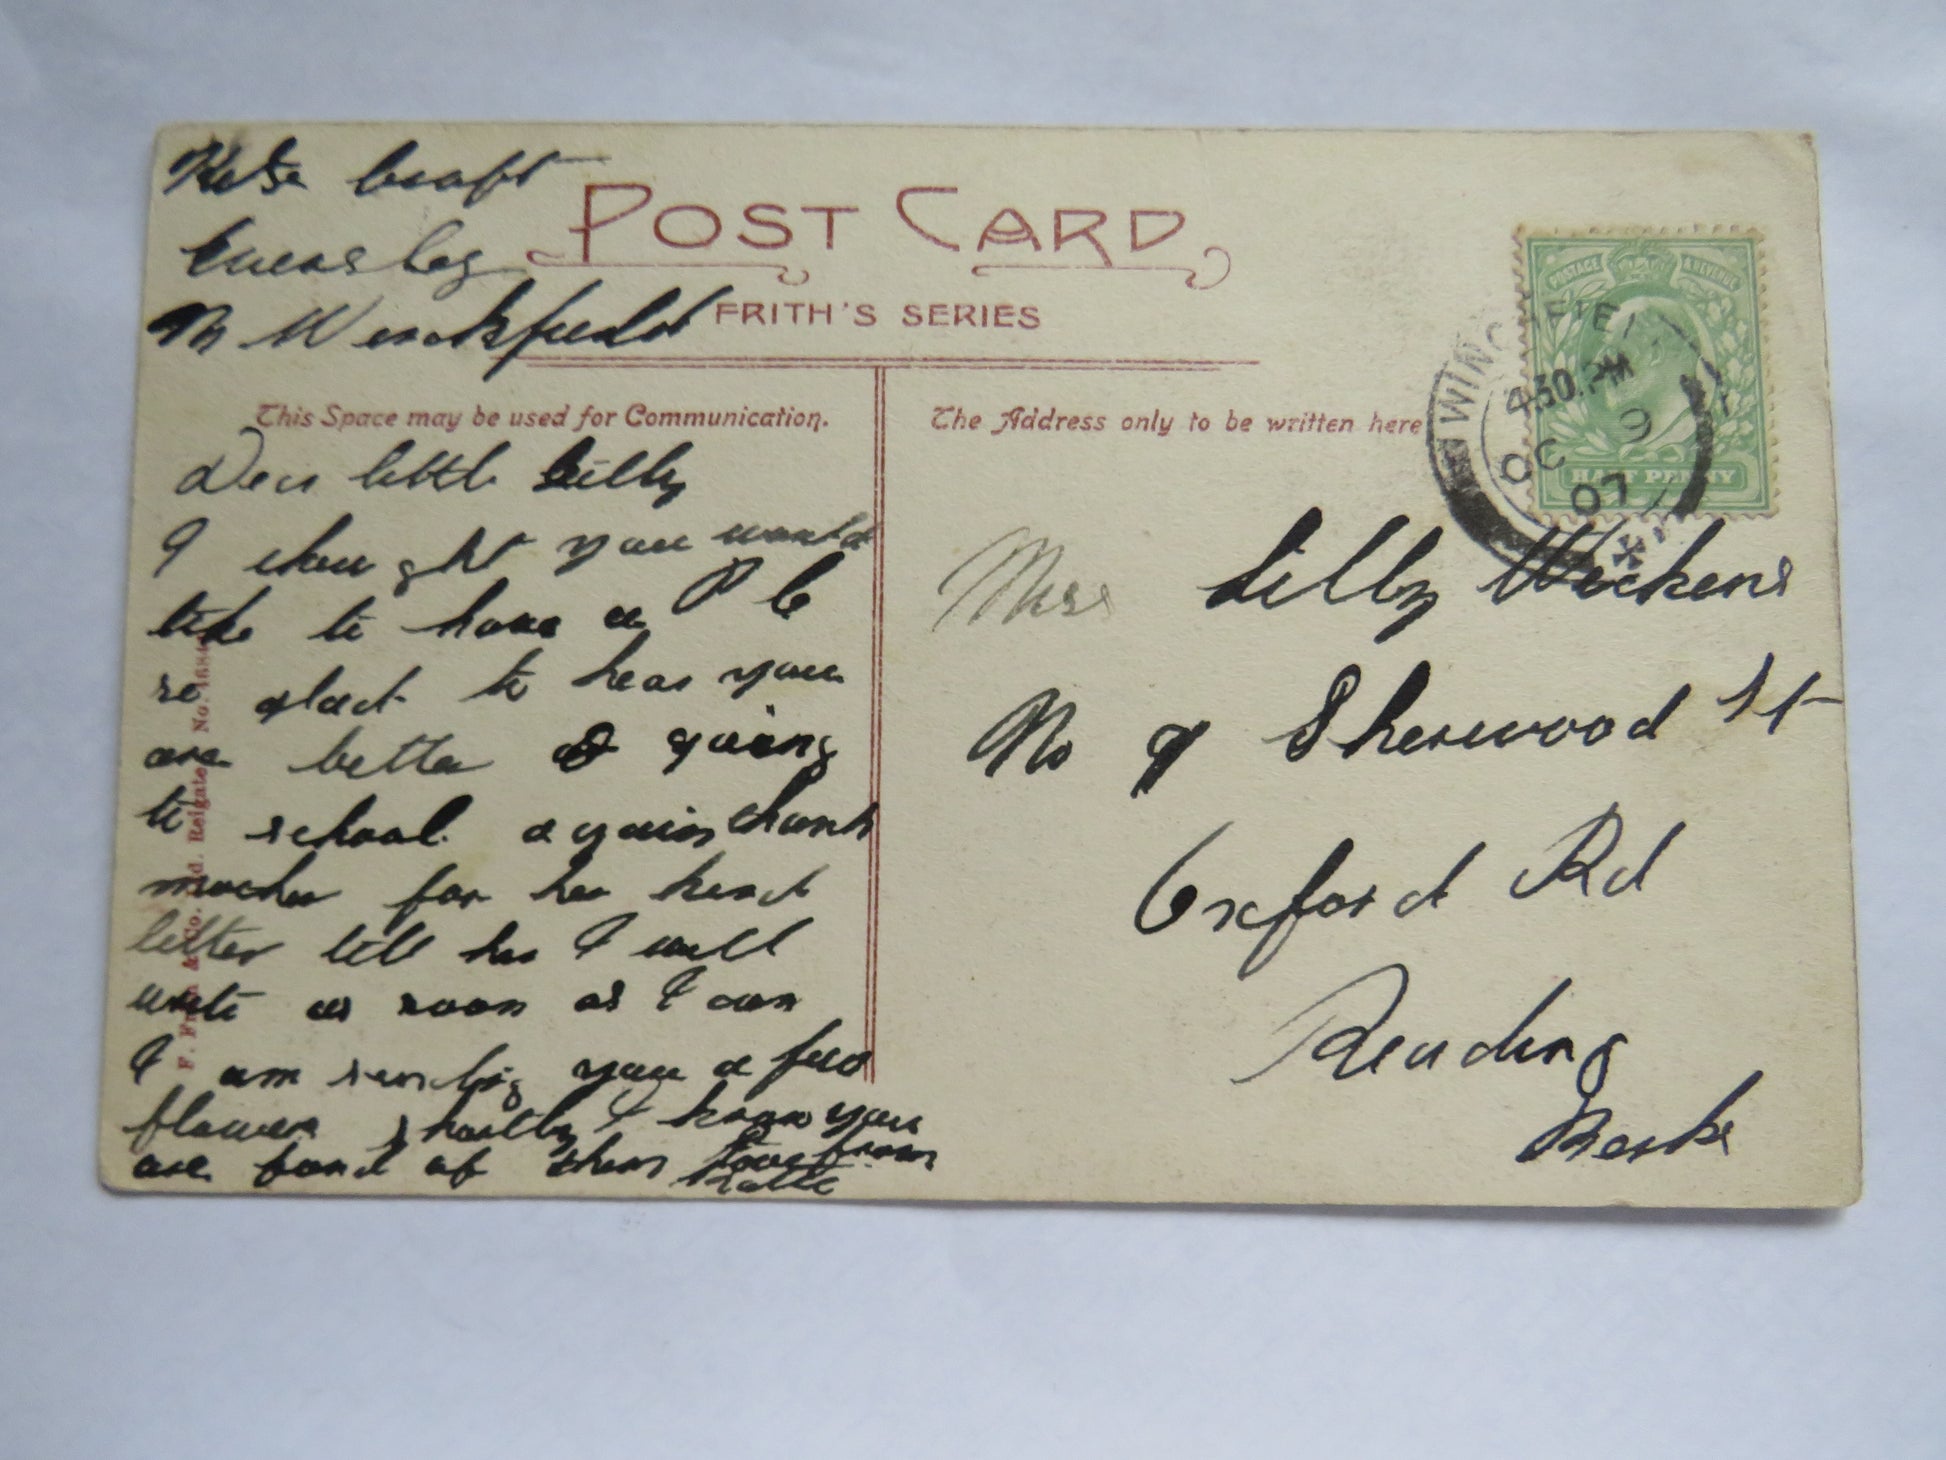 croft
Eversley
Winchfield
POST CARD
FRITH'S SERIES
This Space may be used for Communication.
The Address only to be written here
Dear little Lilly
I thought you would
like to have a P C
so glad to hear you
are better & going
to school again thank
mother for her kind
letter tell her I will
write as soon as I can
I am sending you a few
flowers shortly I know you
are fond of them Love from
F. Frith & Co. Ltd. Reigate No.
POSTAGE & REVENUE
HALF PENNY
WINCHFIELD
4.30 PM
OC 9
07
Lilly Wickens
No 7 Sherwood St
Oxford Rd
Reading
Berks